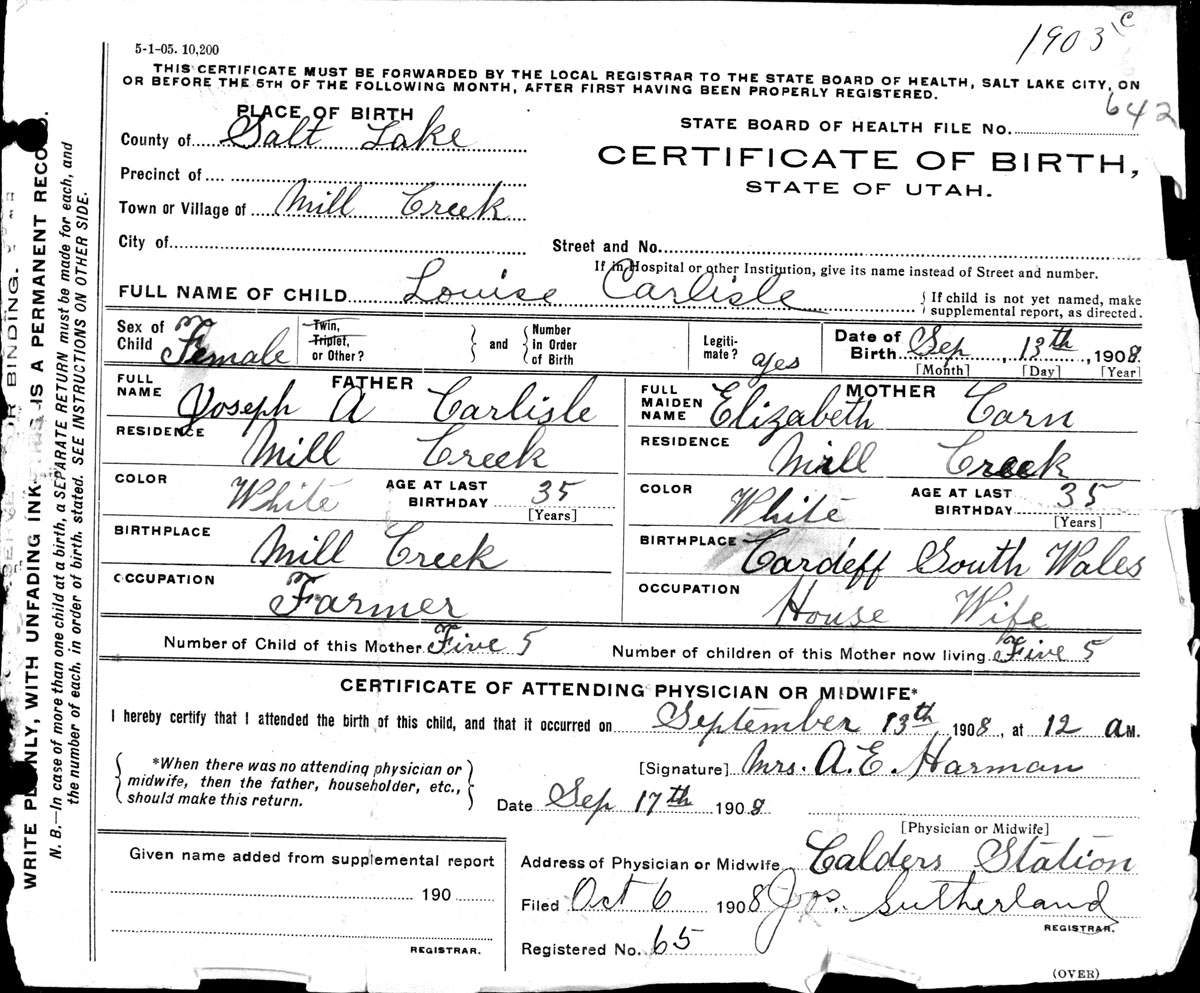 1903 c
5-1-05. 10,200
THIS CERTIFICATE MUST BE FORWARDED BY THE LOCAL REGISTRAR TO THE STATE BOARD OF HEALTH, SALT LAKE CITY, ON
OR BEFORE THE 5TH OF THE FOLLOWING MONTH, AFTER FIRST HAVING BEEN PROPERLY REGISTERED.
PLACE OF BIRTH
STATE BOARD OF HEALTH FILE No. 642
County of Salt Lake
CERTIFICATE OF BIRTH,
STATE OF UTAH.
Precinct of
Town or Village of Mill Creek
City of
Street and No.
If in Hospital or other Institution, give its name instead of Street and number.
FULL NAME OF CHILD Louise Carlisle
If child is not yet named, make
supplemental report, as directed.
Sex of Child Female
Twin,
Triplet,
or Other?
and
Number
in Order
of Birth
Legiti-
mate? yes
Date of
Birth Sep, 13th, 1908
[Month] [Day] [Year]
FATHER
FULL NAME Joseph A Carlisle
RESIDENCE Mill Creek
COLOR White AGE AT LAST BIRTHDAY 35
[Years]
BIRTHPLACE Mill Creek
OCCUPATION Farmer
MOTHER
FULL MAIDEN NAME Elizabeth Corn
RESIDENCE Mill Creek
COLOR White AGE AT LAST BIRTHDAY 35
[Years]
BIRTHPLACE Cardeff South Wales
OCCUPATION House Wife
Number of Child of this Mother Five 5
Number of children of this Mother now living Five 5
CERTIFICATE OF ATTENDING PHYSICIAN OR MIDWIFE*
I hereby certify that I attended the birth of this child, and that it occurred on September 13th, 1908, at 12 aM.
*When there was no attending physician or
midwife, then the father, householder, etc.,
should make this return.
[Signature] Mrs. A. E. Harman
Date Sep 17th 1908
[Physician or Midwife]
Given name added from supplemental report
190
REGISTRAR.
Address of Physician or Midwife Calders Station
Filed Oct 6 1908 Jos. Sutherland
REGISTRAR.
Registered No. 65
(OVER)
BINDING.
WRITE PLAINLY, WITH UNFADING INK IS A PERMANENT RECORD.
N. B.—In case of more than one child at a birth, a SEPARATE RETURN must be made for each, and
the number of each, in order of birth, stated. SEE INSTRUCTIONS ON OTHER SIDE.